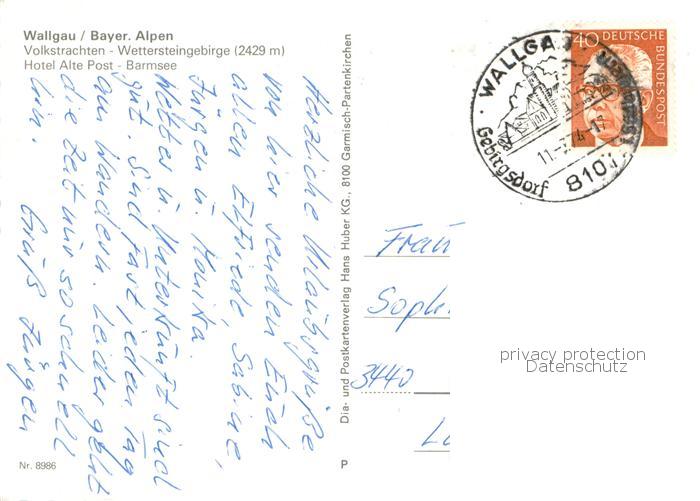 Wallgau / Bayer. Alpen
Volkstrachten - Wettersteingebirge (2429 m)
Hotel Alte Post - Barmsee
Herzliche Urlaubsgrüße
von hier senden Euch
allen Elfriede, Sabine,
Jürgen u. Monika.
Wetter u. Unterkunft sind
gut. Sind fast jeden Tag
am Wandern. Leider geht
die Zeit nur so schnell
hin. Gruß Jürgen
Nr. 8986
P
Dia- und Postkartenverlag Hans Huber KG., 8100 Garmisch-Partenkirchen
WALLGAU
Gebirgsdorf
8101
40 DEUTSCHE
BUNDESPOST
Frau
Soph
3440
privacy protection
Datenschutz